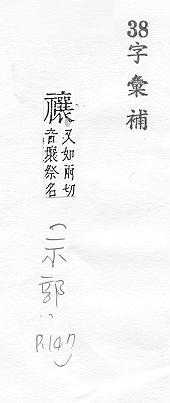 38字彙補
禳又如兩切
音祭名
(示部:P.147)